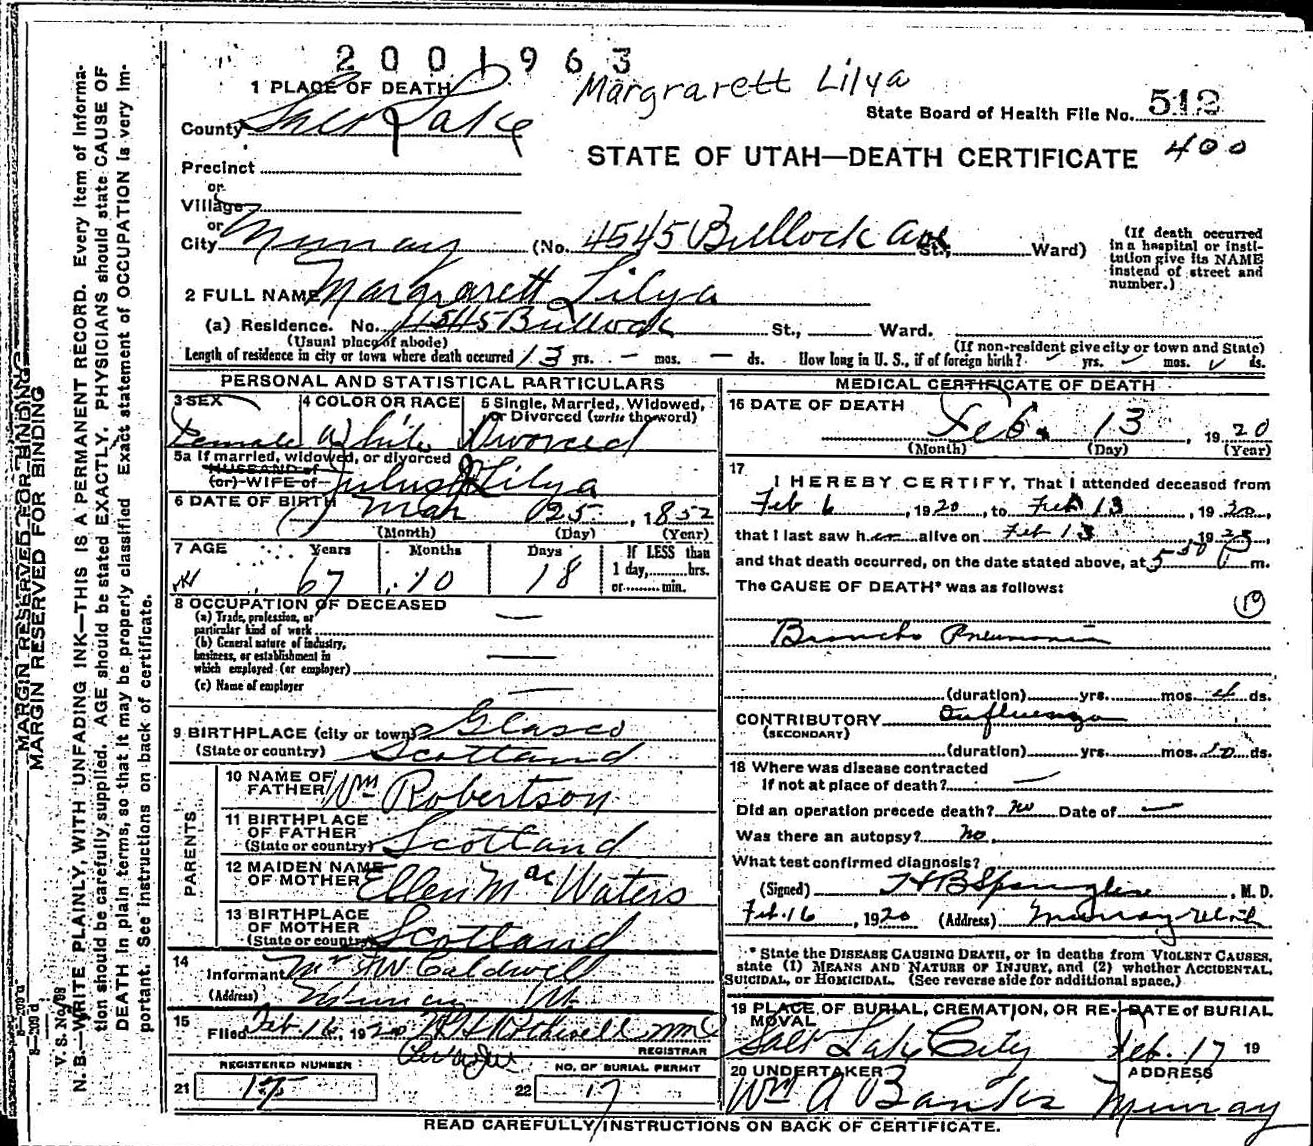 2001963
Margrarett Lilya
1 PLACE OF DEATH
State Board of Health File No. 512
County Salt Lake
STATE OF UTAH—DEATH CERTIFICATE 400
Precinct
or
Village
or
City Murray (No. 4545 Bullock Ave St., Ward)
(If death occurred in a hospital or institution give its NAME instead of street and number.)
2 FULL NAME Margrarett Lilya
(a) Residence. No. 4545 Bullock St., Ward.
(Usual place of abode) (If non-resident give city or town and State)
Length of residence in city or town where death occurred 13 yrs. - mos. - ds. How long in U. S., if of foreign birth? yrs. mos. ds.
PERSONAL AND STATISTICAL PARTICULARS
3 SEX 4 COLOR OR RACE 5 Single, Married, Widowed, or Divorced (write the word)
Female White Divorced
5a If married, widowed, or divorced
HUSBAND of
(or) WIFE of Julus Lilya
6 DATE OF BIRTH Mar 25, 1852
(Month) (Day) (Year)
7 AGE Years Months Days If LESS than
67 10 18 1 day,........hrs.
or........min.
8 OCCUPATION OF DECEASED
(a) Trade, profession, or
particular kind of work
(b) General nature of industry,
business, or establishment in
which employed (or employer)
(c) Name of employer
9 BIRTHPLACE (city or town) Glasco
(State or country) Scotland
PARENTS
10 NAME OF FATHER Wm Robertson
11 BIRTHPLACE OF FATHER
(State or country) Scotland
12 MAIDEN NAME OF MOTHER Ellen Mac Waters
13 BIRTHPLACE OF MOTHER
(State or country) Scotland
14
Informant W Caldwell
(Address) Murray Ut
15
Filed Feb. 16, 1920
REGISTRAR
REGISTERED NUMBER NO. OF BURIAL PERMIT
21 17 22 17
MEDICAL CERTIFICATE OF DEATH
16 DATE OF DEATH
Feb. 13, 1920
(Month) (Day) (Year)
17
I HEREBY CERTIFY, That I attended deceased from
Feb 6, 1920, to Feb 13, 1920,
that I last saw her alive on Feb 13, 19
and that death occurred, on the date stated above, at 530 P m.
The CAUSE OF DEATH* was as follows:
Broncho Pneumonia
(duration) yrs. mos. 4 ds.
CONTRIBUTORY Influenza
(SECONDARY)
(duration) yrs. mos. 10 ds.
18 Where was disease contracted
If not at place of death?
Did an operation precede death? no Date of
Was there an autopsy? no.
What test confirmed diagnosis?
(Signed) H B Spangler, M. D.
Feb. 16, 1920 (Address) Murray Utah
* State the DISEASE CAUSING DEATH, or in deaths from VIOLENT CAUSES, state (1) MEANS AND NATURE OF INJURY, and (2) whether ACCIDENTAL, SUICIDAL, or HOMICIDAL. (See reverse side for additional space.)
19 PLACE OF BURIAL, CREMATION, OR REMOVAL DATE of BURIAL
Salt Lake City Feb. 17 19
20 UNDERTAKER ADDRESS
Wm A Banks Murray
READ CAREFULLY INSTRUCTIONS ON BACK OF CERTIFICATE.
MARGIN RESERVED FOR BINDING
MARGIN RESERVED FOR BINDING
V. S. No.
N. B.—WRITE PLAINLY, WITH UNFADING INK—THIS IS A PERMANENT RECORD. Every item of information should be carefully supplied. AGE should be stated EXACTLY. PHYSICIANS should state CAUSE OF DEATH in plain terms, so that it may be properly classified. Exact statement of OCCUPATION is very important. See instructions on back of certificate.